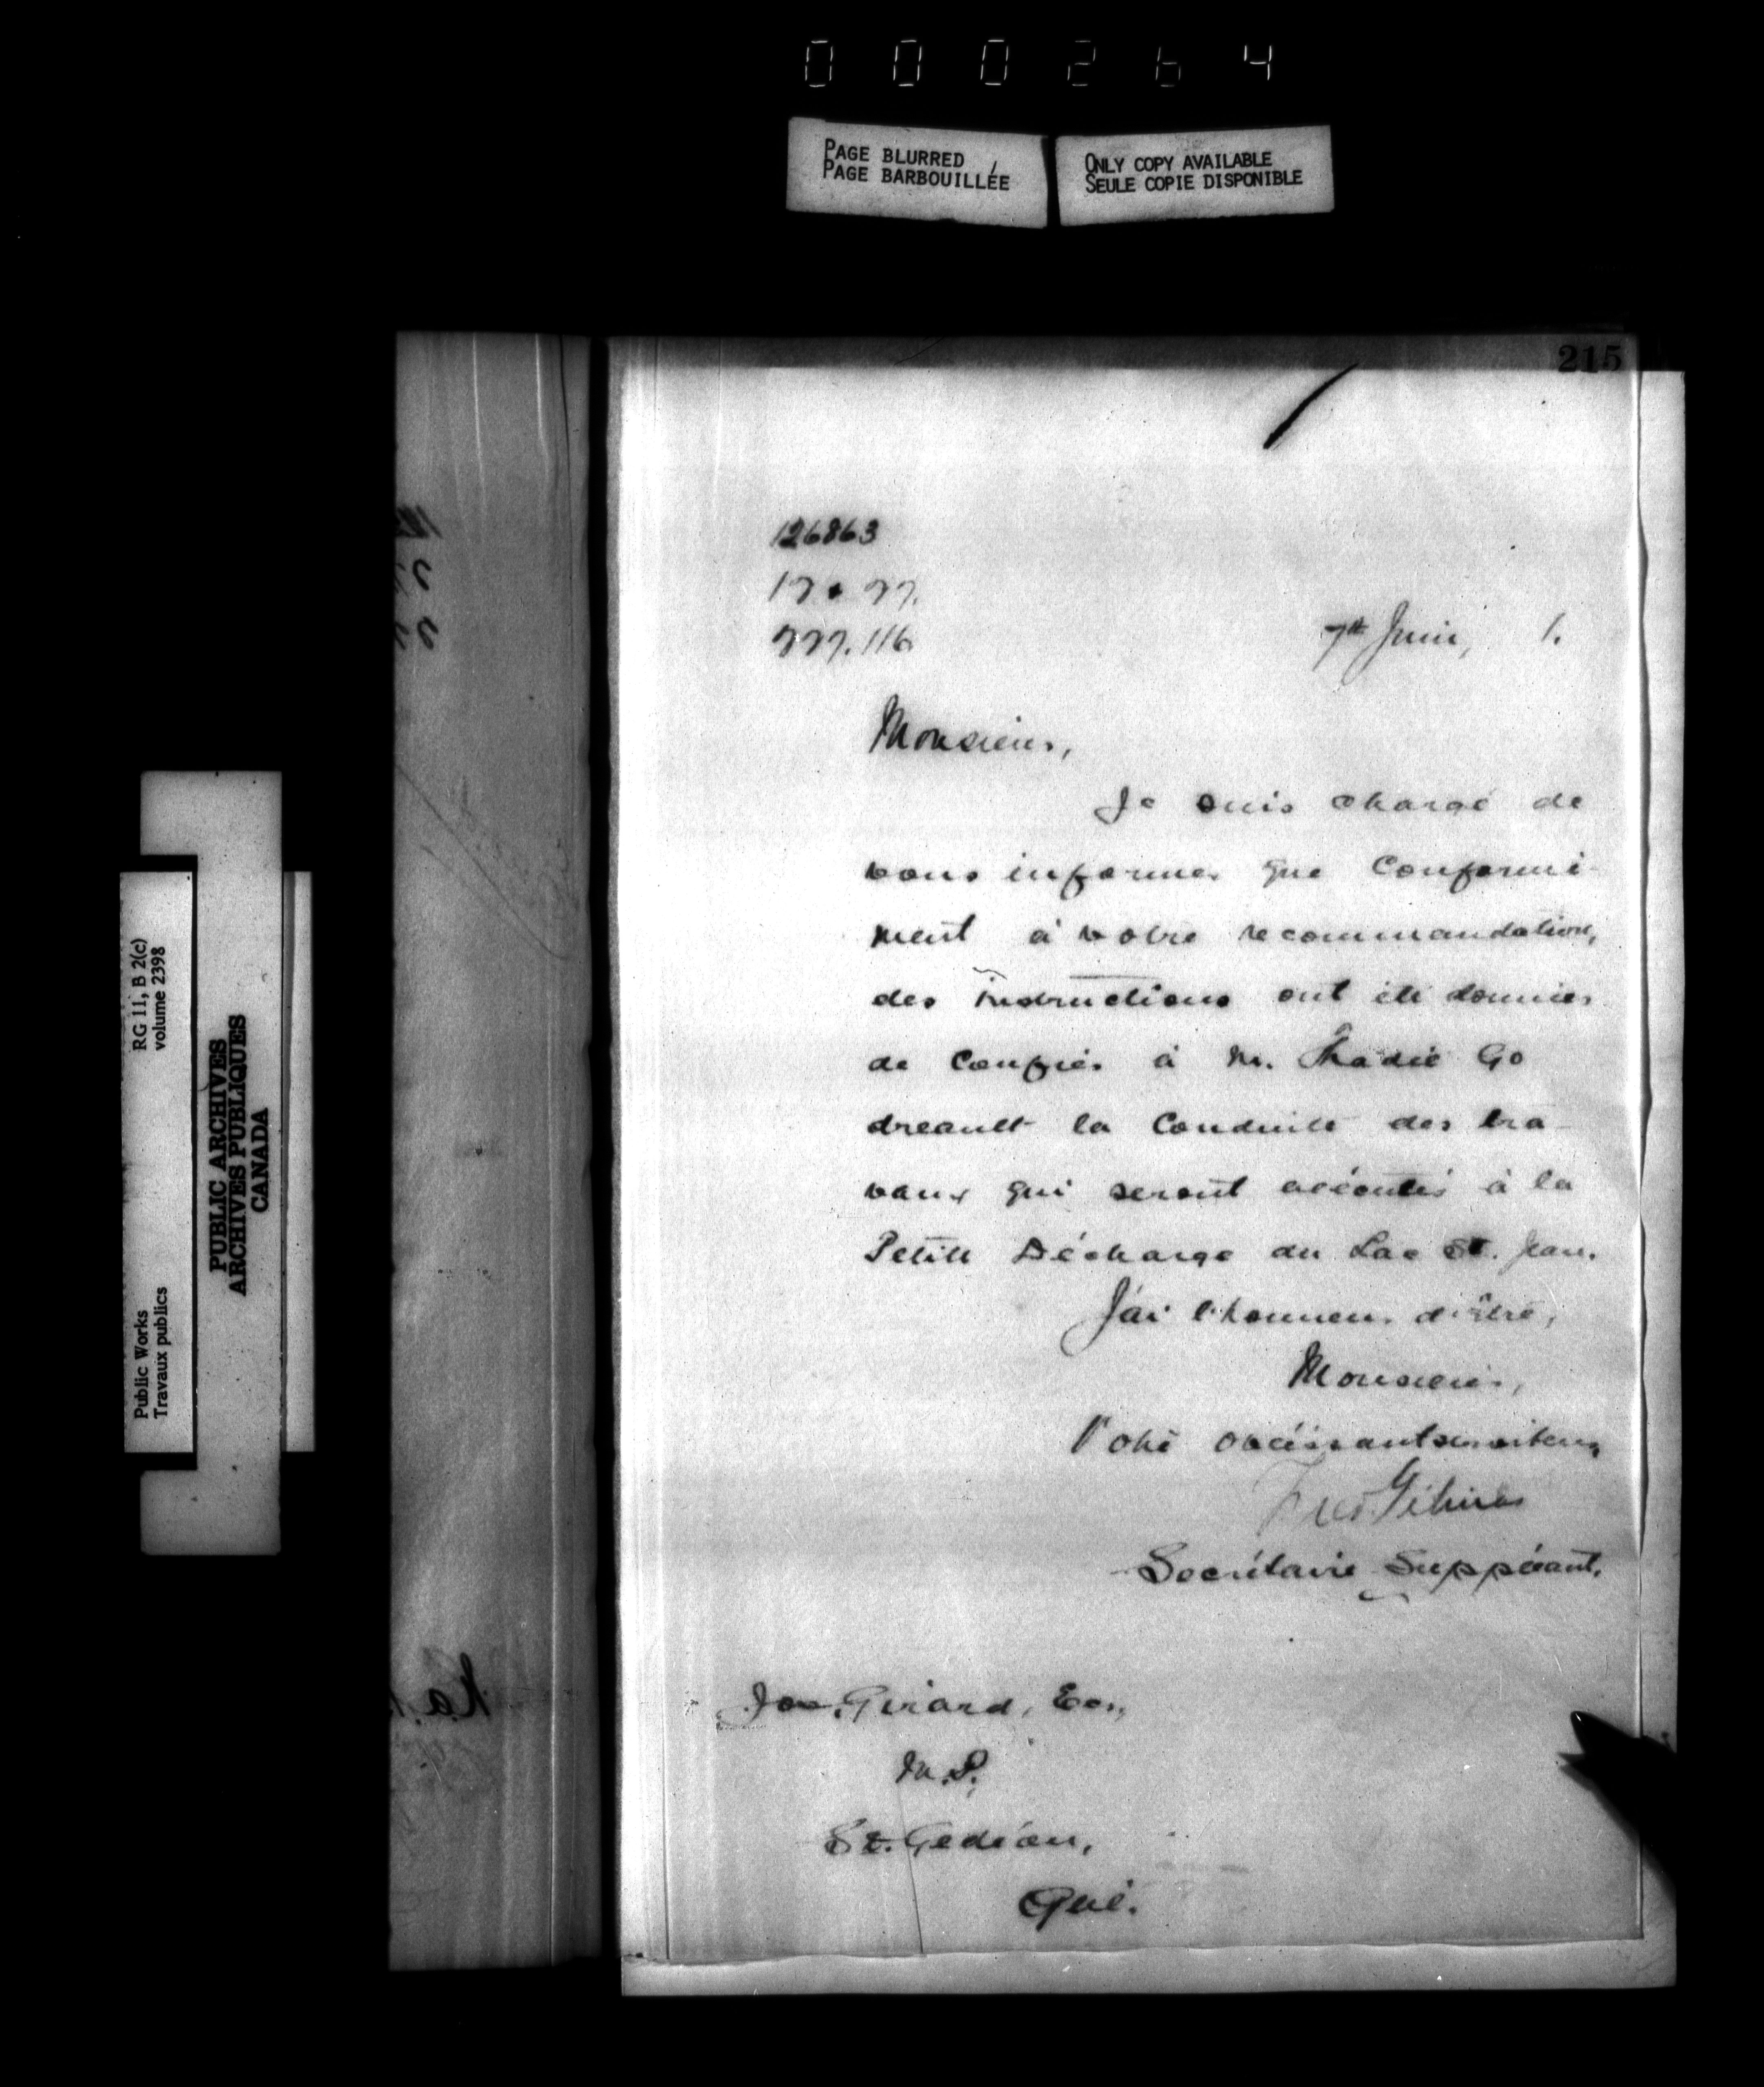 000264
PAGE BLURRED
PAGE BARBOUILLÉE
ONLY COPY AVAILABLE
SEULE COPIE DISPONIBLE
215
126863
777.116
7th Juin, 1.
Monsieur,
Je suis chargé de
vous informer que conformé-
ment à votre recommandation,
des instructions ont été données
de confier à M. Thadé Go
dreault la conduite des tra-
vaux qui seront exécutés à la
Petite Décharge du Lac St. Jean.
J'ai l'honneur d'être,
Monsieur,
Votre obéissant serviteur,
Fred Gélinas
Secrétaire Suppléant.
Jos. Girard, Ecr.,
M.P.
St. Gédéon,
Qué.
RG 11, B 2(c)
volume 2398
PUBLIC ARCHIVES
ARCHIVES PUBLIQUES
CANADA
Public Works
Travaux publics